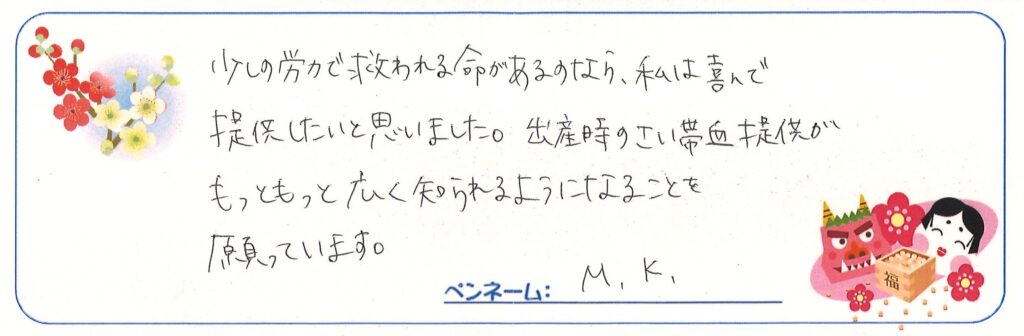 少しの労力で救われる命があるのなら、私は喜んで
提供したいと思いました。出産時のさい帯血提供が
もっともっと広く知られるようになることを
願っています。
ペンネーム: M.K.
福